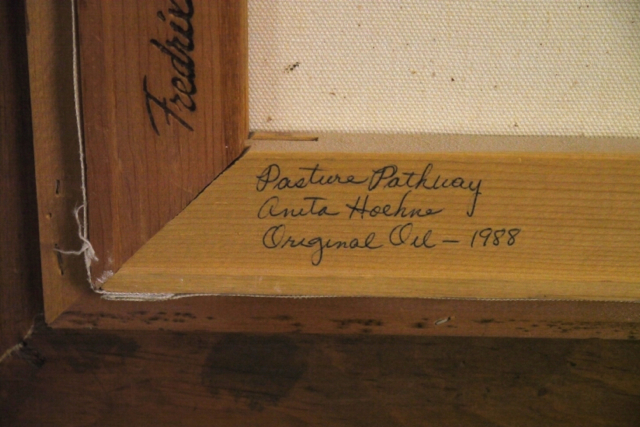 Fredrix
Pasture Pathway
Anita Hoehne
Original Oil – 1988